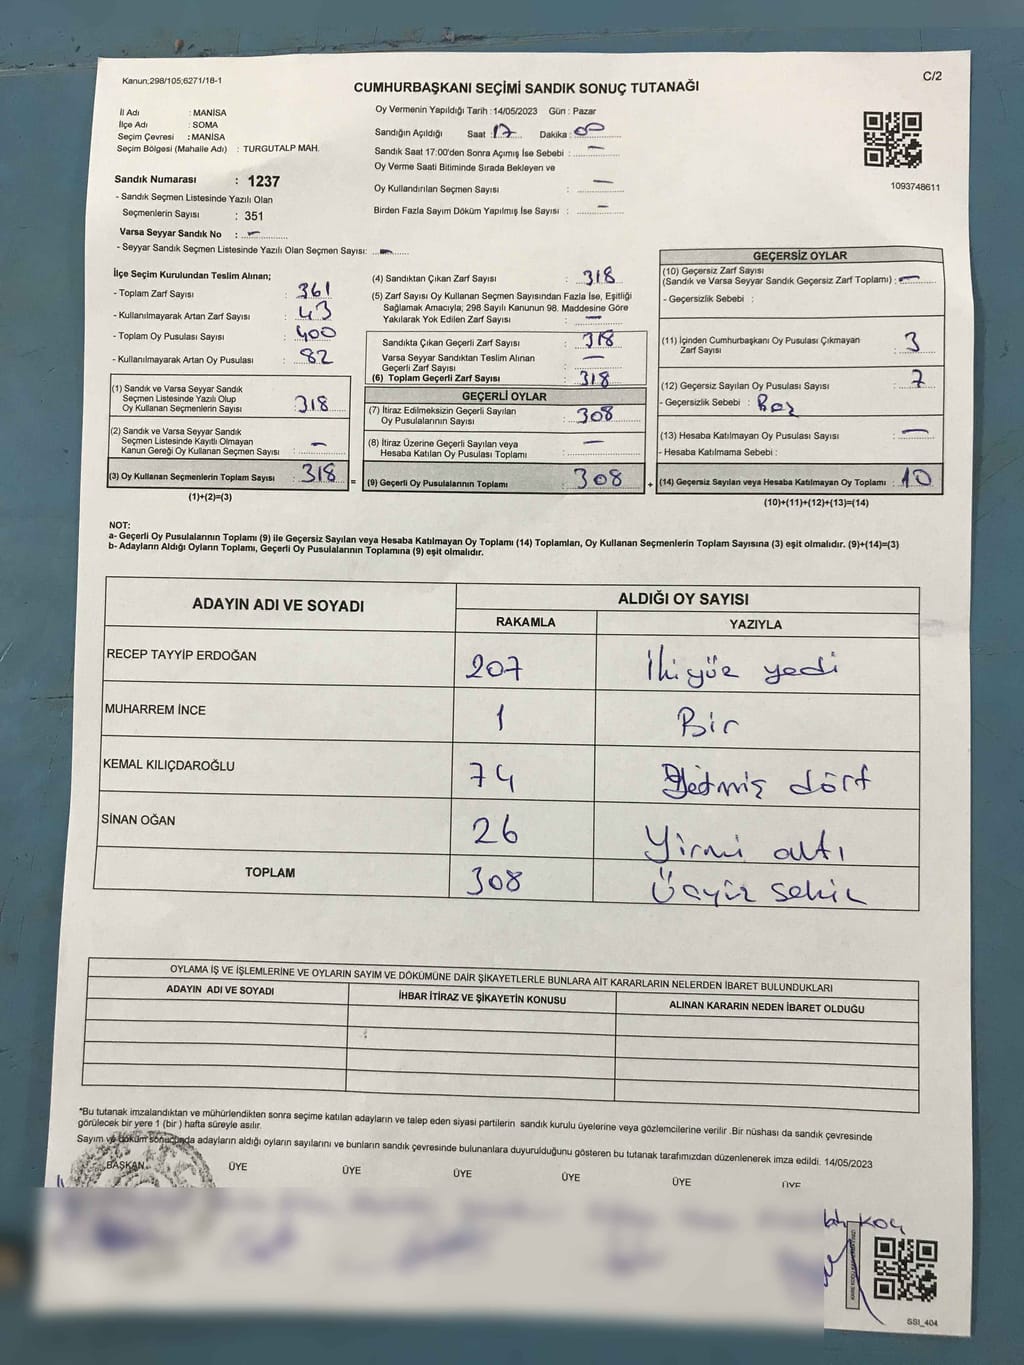 Kanun;298/105;6271/18-1
C/2
CUMHURBAŞKANI SEÇİMİ SANDIK SONUÇ TUTANAĞI
İl Adı : MANİSA
İlçe Adı : SOMA
Seçim Çevresi : MANİSA
Seçim Bölgesi (Mahalle Adı) : TURGUTALP MAH.
Oy Vermenin Yapıldığı Tarih : 14/05/2023 Gün : Pazar
Sandığın Açıldığı Saat : 17 Dakika : 00
Sandık Saat 17:00'den Sonra Açımış İse Sebebi : —
Oy Verme Saati Bitiminde Sırada Bekleyen ve
Oy Kullandırılan Seçmen Sayısı : —
Birden Fazla Sayım Döküm Yapılmış İse Sayısı : —
1093748611
Sandık Numarası : 1237
- Sandık Seçmen Listesinde Yazılı Olan
Seçmenlerin Sayısı : 351
Varsa Seyyar Sandık No : —
- Seyyar Sandık Seçmen Listesinde Yazılı Olan Seçmen Sayısı: —
İlçe Seçim Kurulundan Teslim Alınan;
- Toplam Zarf Sayısı : 361
- Kullanılmayarak Artan Zarf Sayısı : 43
- Toplam Oy Pusulası Sayısı : 400
- Kullanılmayarak Artan Oy Pusulası : 82
(1) Sandık ve Varsa Seyyar Sandık
Seçmen Listesinde Yazılı Olup
Oy Kullanan Seçmenlerin Sayısı : 318
(2) Sandık ve Varsa Seyyar Sandık
Seçmen Listesinde Kayıtlı Olmayan
Kanun Gereği Oy Kullanan Seçmen Sayısı : —
(3) Oy Kullanan Seçmenlerin Toplam Sayısı : 318
(1)+(2)=(3)
(4) Sandıktan Çıkan Zarf Sayısı : 318
(5) Zarf Sayısı Oy Kullanan Seçmen Sayısından Fazla İse, Eşitliği
Sağlamak Amacıyla; 298 Sayılı Kanunun 98. Maddesine Göre
Yakılarak Yok Edilen Zarf Sayısı : —
Sandıkta Çıkan Geçerli Zarf Sayısı : 318
Varsa Seyyar Sandıktan Teslim Alınan
Geçerli Zarf Sayısı : —
(6) Toplam Geçerli Zarf Sayısı : 318
GEÇERLİ OYLAR
(7) İtiraz Edilmeksizin Geçerli Sayılan
Oy Pusulalarının Sayısı : 308
(8) İtiraz Üzerine Geçerli Sayılan veya
Hesaba Katılan Oy Pusulası Toplamı : —
= (9) Geçerli Oy Pusulalarının Toplamı : 308
GEÇERSİZ OYLAR
(10) Geçersiz Zarf Sayısı
(Sandık ve Varsa Seyyar Sandık Geçersiz Zarf Toplamı) : —
- Geçersizlik Sebebi :
(11) İçinden Cumhurbaşkanı Oy Pusulası Çıkmayan
Zarf Sayısı : 3
(12) Geçersiz Sayılan Oy Pusulası Sayısı : 7
- Geçersizlik Sebebi : Boz
(13) Hesaba Katılmayan Oy Pusulası Sayısı : —
- Hesaba Katılmama Sebebi :
+ (14) Geçersiz Sayılan veya Hesaba Katılmayan Oy Toplamı : 10
(10)+(11)+(12)+(13)=(14)
NOT:
a- Geçerli Oy Pusulalarının Toplamı (9) ile Geçersiz Sayılan veya Hesaba Katılmayan Oy Toplamı (14) Toplamları, Oy Kullanan Seçmenlerin Toplam Sayısına (3) eşit olmalıdır. (9)+(14)=(3)
b- Adayların Aldığı Oyların Toplamı, Geçerli Oy Pusulalarının Toplamına (9) eşit olmalıdır.
ADAYIN ADI VE SOYADI
ALDIĞI OY SAYISI
RAKAMLA YAZIYLA
RECEP TAYYİP ERDOĞAN 207 İkiyüz yedi
MUHARREM İNCE 1 Bir
KEMAL KILIÇDAROĞLU 74 Yetmiş dört
SİNAN OĞAN 26 Yirmi altı
TOPLAM 308 Üçyüz sekiz
OYLAMA İŞ VE İŞLEMLERİNE VE OYLARIN SAYIM VE DÖKÜMÜNE DAİR ŞİKAYETLERLE BUNLARA AİT KARARLARIN NELERDEN İBARET BULUNDUKLARI
ADAYIN ADI VE SOYADI İHBAR İTİRAZ VE ŞİKAYETİN KONUSU ALINAN KARARIN NEDEN İBARET OLDUĞU
*Bu tutanak imzalandıktan ve mühürlendikten sonra seçime katılan adayların ve talep eden siyasi partilerin sandık kurulu üyelerine veya gözlemcilerine verilir .Bir nüshası da sandık çevresinde
görülecek bir yere 1 (bir ) hafta süreyle asılır.
Sayım ve döküm sonucunda adayların aldığı oyların sayılarını ve bunların sandık çevresinde bulunanlara duyurulduğunu gösteren bu tutanak tarafımızdan düzenlenerek imza edildi. 14/05/2023
BAŞKAN ÜYE ÜYE ÜYE ÜYE ÜYE ÜYE
KOÇ
SSI_404